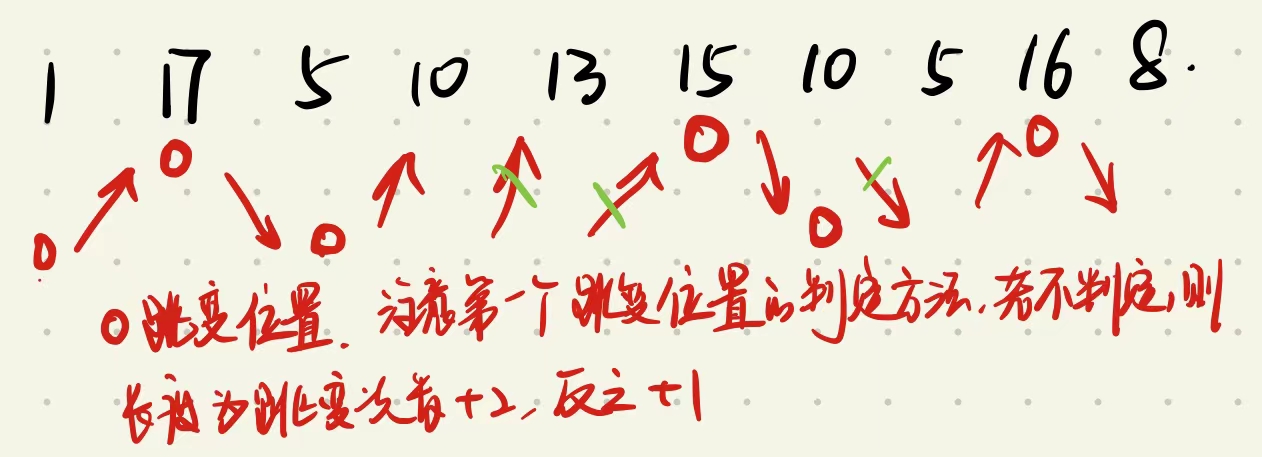 1 17 5 10 13 15 10 5 16 8.
O 跳变位置. 注意第一个跳变位置的判定方法,若不判定,则
长度为跳变次数+2,反之+1